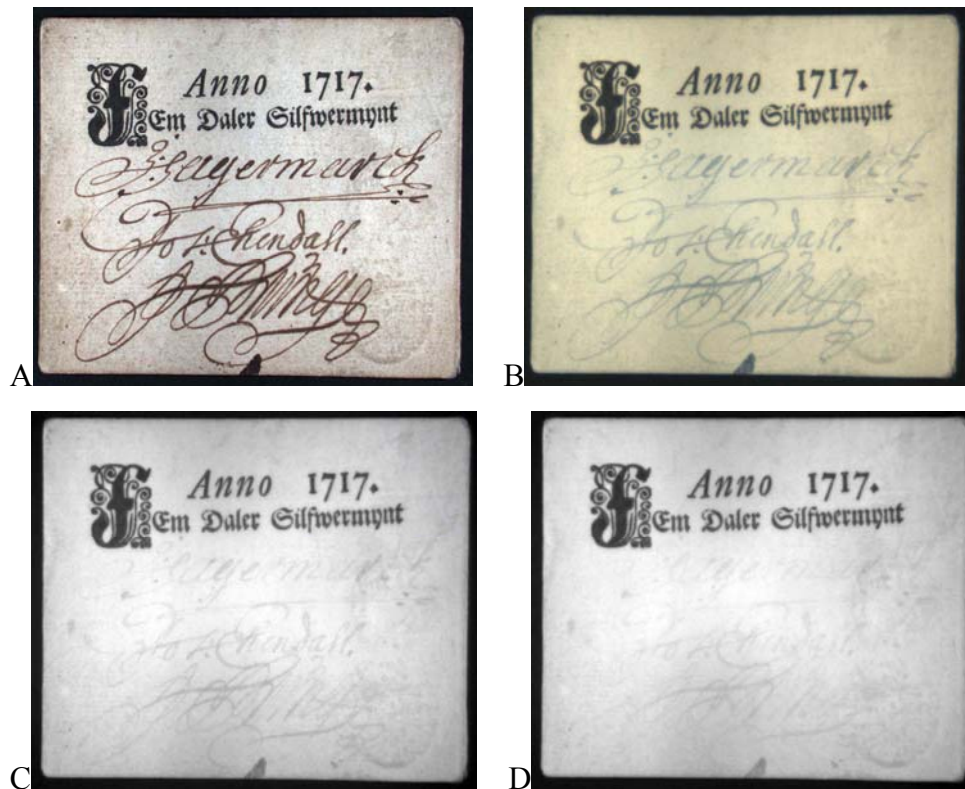 A
Anno 1717.
f Em Daler Silfwermynt
Jagermarck
Jos: Ekendall.
B
Anno 1717.
f Em Daler Silfwermynt
Jagermarck
Jos: Ekendall.
C
Anno 1717.
f Em Daler Silfwermynt
D
Anno 1717.
f Em Daler Silfwermynt